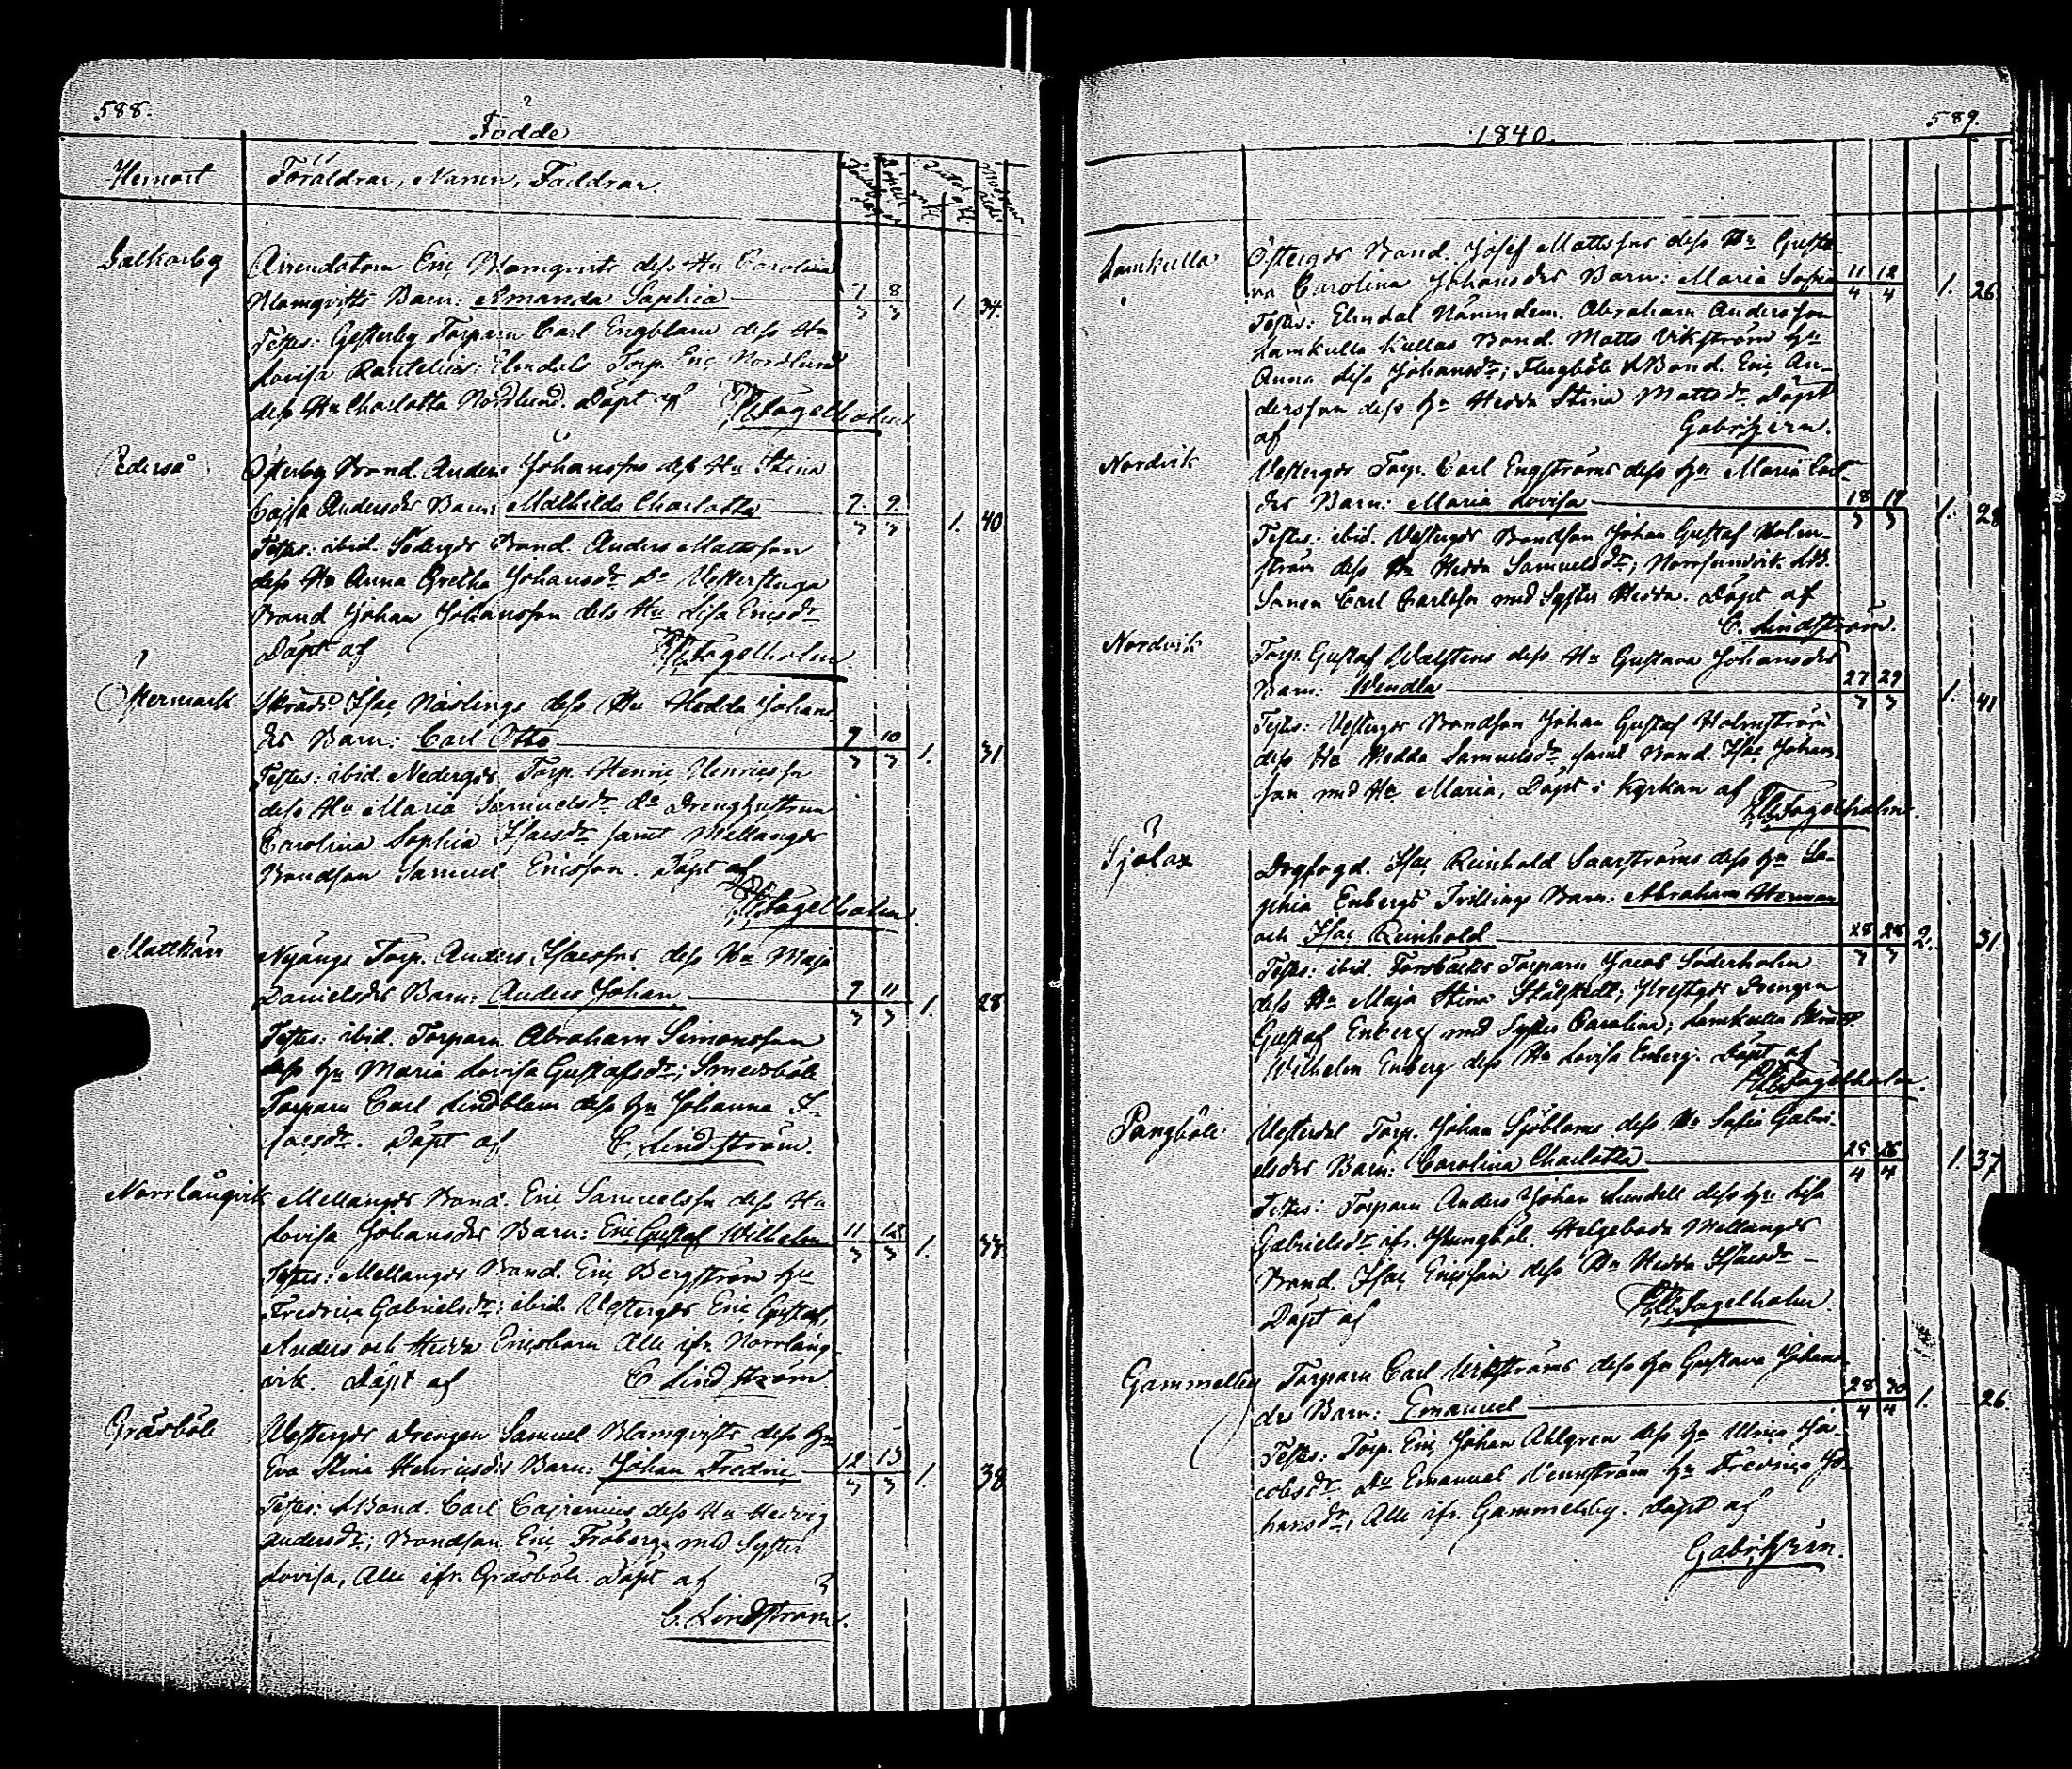 588.
Födde
Hemort
Föräldrar, Namn, Faddrar.
Arrendatorn Eric Blomqvists dess Hu Carolina
Blomqvists Barn: Amanda Sophia 7 8 1 34.
3 3
Testes: Gesterby Torparn Carl Engblom dess Hu
Lovisa Rautelius: Elmdals Torp. Eric Nordlund
dess Hu Charlotta Nordlund. Döpt af Fagerholm
Pederså Österby Bond. Anders Johanssons dess Hu Stina
Cajsa Andersdrs Barn: Mathilda Charlotta 7. 9. 1. 40
3 3
Testes: ibid. Södergds Bond. Anders Mattsson
dess Hu Anna Gretha Johansdr Do Vesterstuga
Bond Johan Johansson dess Hu Lisa Ericsdr
Döpt af Fagerholm
Östermark Skrädd. Isac Näslings dess Hu Hedda Johans
drs Barn: Carl Otto 9 10 1. 31
3 3
Testes: ibid. Nedergds Torp. Henric Henricsson
dess Hu Maria Samuelsdr do Drenghustrun
Carolina Sophia Isacsdr samt Mellangds
Bondson Samuel Ericsson. Döpt af
Fagerholm
Mattkärr Nyängs Torp. Anders Isacssons dess Hu Maja
Danielsdrs Barn: Anders Johan 9 11 1. 28
3 3
Testes: ibid. Torparn Abraham Simonsson
dess Hu Maria Lovisa Gustafsdr; Smedsböle
Torparn Carl Lindblom dess Hu Johanna I-
sacsdr. Döpt af C. Lindström.
Norrlångvik Mellangds Bond. Eric Samuelsson dess Hu
Lovisa Johansdrs Barn: Eric Gustaf Wilhelm 11 12 1. 33
3 3
Testes: Mellangds Bond. Eric Bergström Hu
Fredrica Gabrielsdr; ibid. Vestergds Eric Gustaf,
Anders och Hedda Ericsbarn Alle ifr. Norrlång-
vik. Döpt af C Lindström
Gräsböle Vestergds Drengen Samuel Blomqvists dess Hu
Eva Stina Henricsdrs Barn: Johan Fredric 12 13 1. 38
3 3
Testes: LBond. Carl Cajrenius dess Hu Hedvig
Andersdr; Bondson Eric Froberg med Syster
Lovisa, Alle ifr. Gräsböle. Döpt af
C. Lindström.
1840.
589.
Lamkulla Östergds Bond. Josef Mattssons dess Hu Gusta-
va Carolina Johansdrs Barn: Maria Sofia 11 12 1. 26
4 4
Testes: Elmdal Nämndem. Abraham Andersson
Lamkulla Kullas Bond. Matts Vikström Hu
Anna Lisa Johansdr; Flugböle LBond. Eric An-
dersson dess Hu Hedda Stina Mattsdr Döpt
af
Nordvik Vestergds Torp. Carl Engströms dess Hu Maria Carls-
drs Barn: Maria Lovisa 18 19 1. 28
3 3
Testes: ibid. Vestergds Bondson Johan Gustaf Holm-
ström dess Hu Hedda Samuelsdr; Norrsundvik LB.
Sonen Carl Carlsson med Syster Hedda. Döpt af
C. Lindström.
Nordvik Torp. Gustaf Walstens dess Hu Gustava Johansdrs
Barn: Wendla 27 29 1. 41
3 3
Testes: Vestergds Bondson Johan Gustaf Holmström
dess Hu Hedda Samuelsdr samt Bond. Isac Johans-
son med Hu Maria, Döpt i Kyrkan af
Fagerholm.
Sjölax Isac Reinhold Saarströms dess Hu So-
phia Enbergs Tvillings Barn: Abraham Herman
och Isac Reinhold 28 28 2. 31
3 3
Testes: ibid. Forsbacks Torparn Jacob Söderholm
dess Hu Maja Stina Stålstedt; Drengen
Gustaf Enberg med Syster Carolina; Lamkulla
Wilhelm Enberg dess Hu Lovisa Enberg. Döpt af
Fagerholm.
Pangböle Vesterdal Torp. Johan Sjöbloms dess Hu Sofia Gabri-
elsdrs Barn: Carolina Charlotta 25 26 1. 37
4 4
Testes: Torparn Anders Johan Lundell dess Hu Lisa
Gabrielsdr ifr. Pungböle. Helgeboda Mellangds
Bond. Isac Ericsson dess Hu Hedda Isacsdr
Döpt af Fagerholm
Gammelby Torparn Carl Wikströms dess Hu Gustava Johans-
drs Barn: Emanuel 28 30 1. 26
4 4
Testes: Torp. Eric Johan Ahlgren dess Hu Ulrica Ja-
cobsdr Do Emanuel Vennström Hu Fredrica Jo-
hansdr, Alle ifr. Gammelby. Döpt af